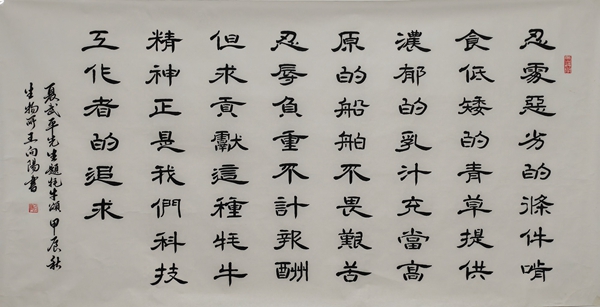 忍處惡劣的條件啃
食低矮的青草提供
濃郁的乳汁充當高
原的船舶不畏艱苦
忍辱負重不計報酬
但求貢獻這種牦牛
精神正是我們科技
工作者的追求
夏武平先生題牦牛頌 甲辰秋
生物所王向陽書